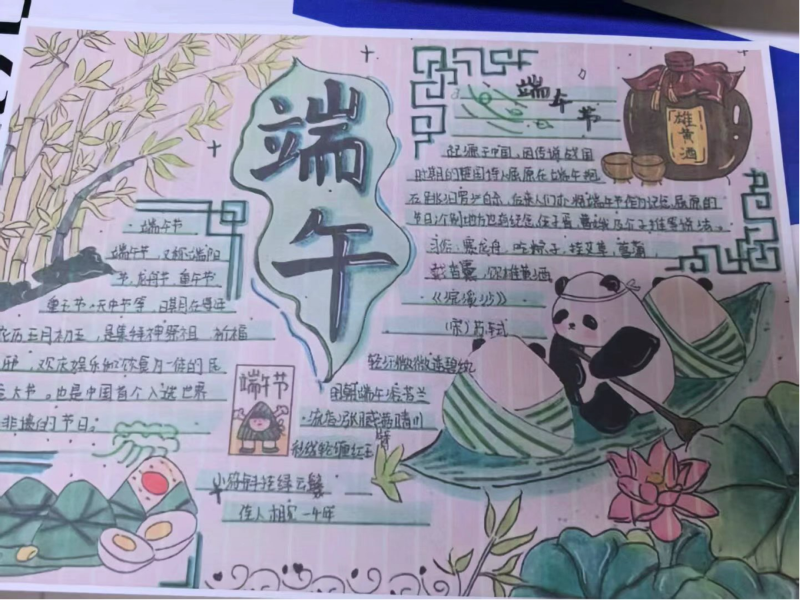 端午
端午节
端午节,又称端阳
节,龙舟节,重午节
天中节等,日期在每年
农历五月初五,是集拜神祭祖、祈福
欢庆娱乐和饮食为一体的民
大节。也是中国首个入选世界
非遗的节日。
端午节
端午节
雄黄酒
起源于中国,因传说战国
时期的楚国诗人屈原在端午
在跳汨罗江自杀,后来人们亦将端午节作为纪念屈原的
节日;个别地方也有纪念伍子胥、曹娥及介子推等说法。
习俗:赛龙舟、吃粽子、挂艾草、菖蒲、
戴香囊、饮雄黄酒
《浣溪沙》
(宋)苏轼
轻汗微微透碧纨
明朝端午浴芳兰
流香涨腻满晴川
彩线轻缠红玉臂
小符斜挂绿云鬟
佳人相见一千年